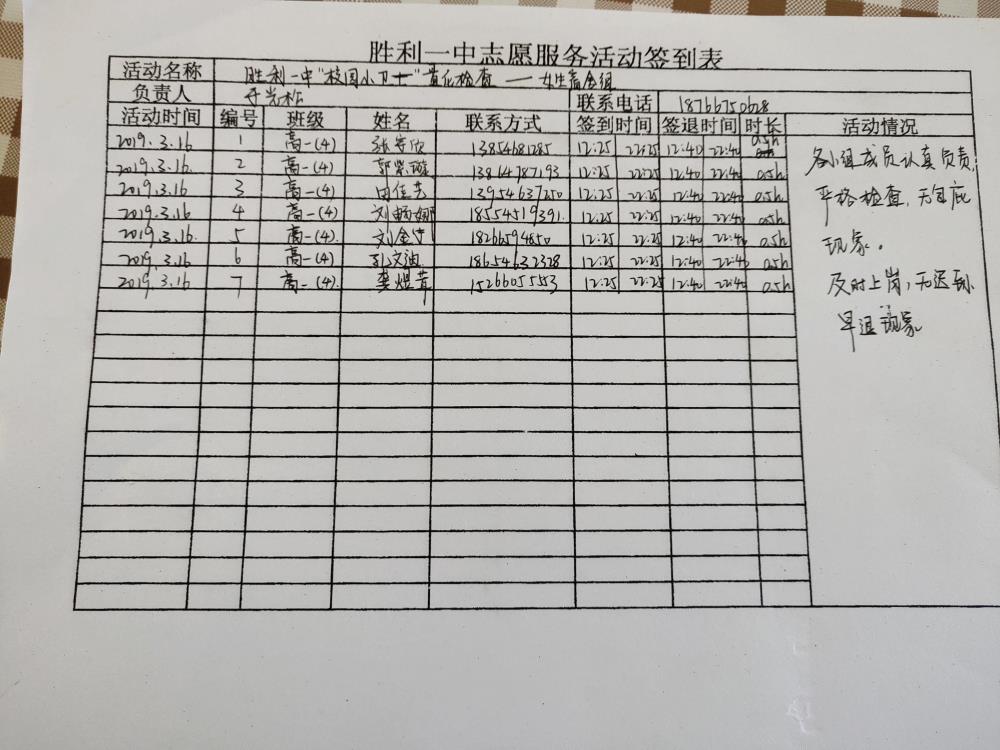 胜利一中志愿服务活动签到表
活动名称 胜利一中"校园小卫士"量化检查——女生宿舍组
负责人 联系电话 18766750628
活动时间 编号 班级 姓名 联系方式 签到时间 签退时间 时长 活动情况
2019.3.16 1 高一(4) 张 欣 13854681285 12:25 22:25 12:40 22:40 0.5h
2019.3.16 2 高一(4) 郭紫璇 13864787193 12:25 22:25 12:40 22:40 0.5h
2019.3.16 3 高一(4) 田佳 13954637250 12:25 22:25 12:40 22:40 0.5h
2019.3.16 4 高一(4) 刘 18554519391. 12:25 22:25 12:40 22:40 0.5h
2019.3.16. 5 高一(4). 刘金 18266594850 12:25 22:25 12:40 22:40 0.5h
2019.3.16 6 高一(4) 孔文迪 18654632328 12:25 22:25 12:40 22:40 0.5h
2019.3.16 7 高一(4) 李煜茸 1526605553 12:25 22:25 12:40 22:40 0.5h
各小组成员认真负责,
严格检查,无包庇
现象。
及时上岗,无迟到
早退现象